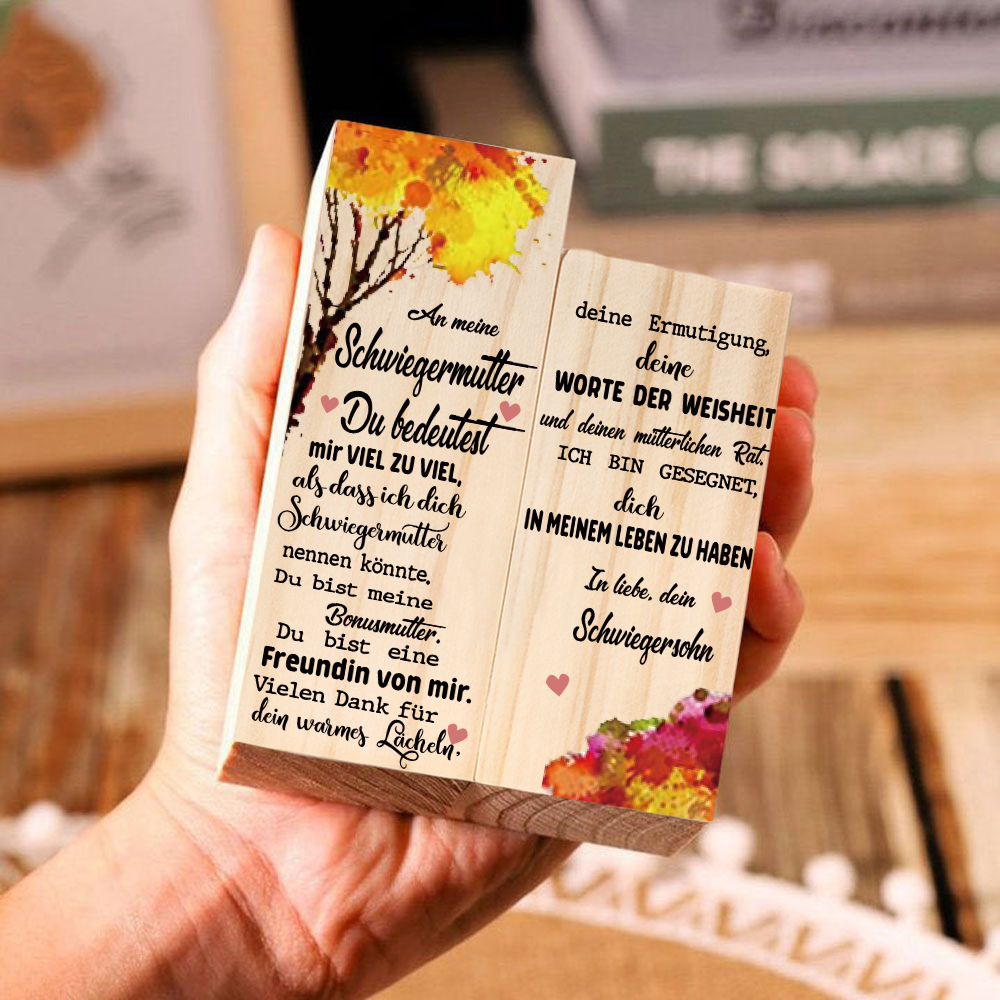 An meine
Schwiegermutter
Du bedeutest
mir VIEL ZU VIEL,
als dass ich dich
Schwiegermutter
nennen könnte.
Du bist meine
Bonusmutter.
Du bist eine
Freundin von mir.
Vielen Dank für
dein warmes Lächeln,
deine Ermutigung,
deine
WORTE DER WEISHEIT
und deinen mütterlichen Rat.
ICH BIN GESEGNET,
dich
IN MEINEM LEBEN ZU HABEN
In liebe, dein
Schwiegersohn
THE SOLACE